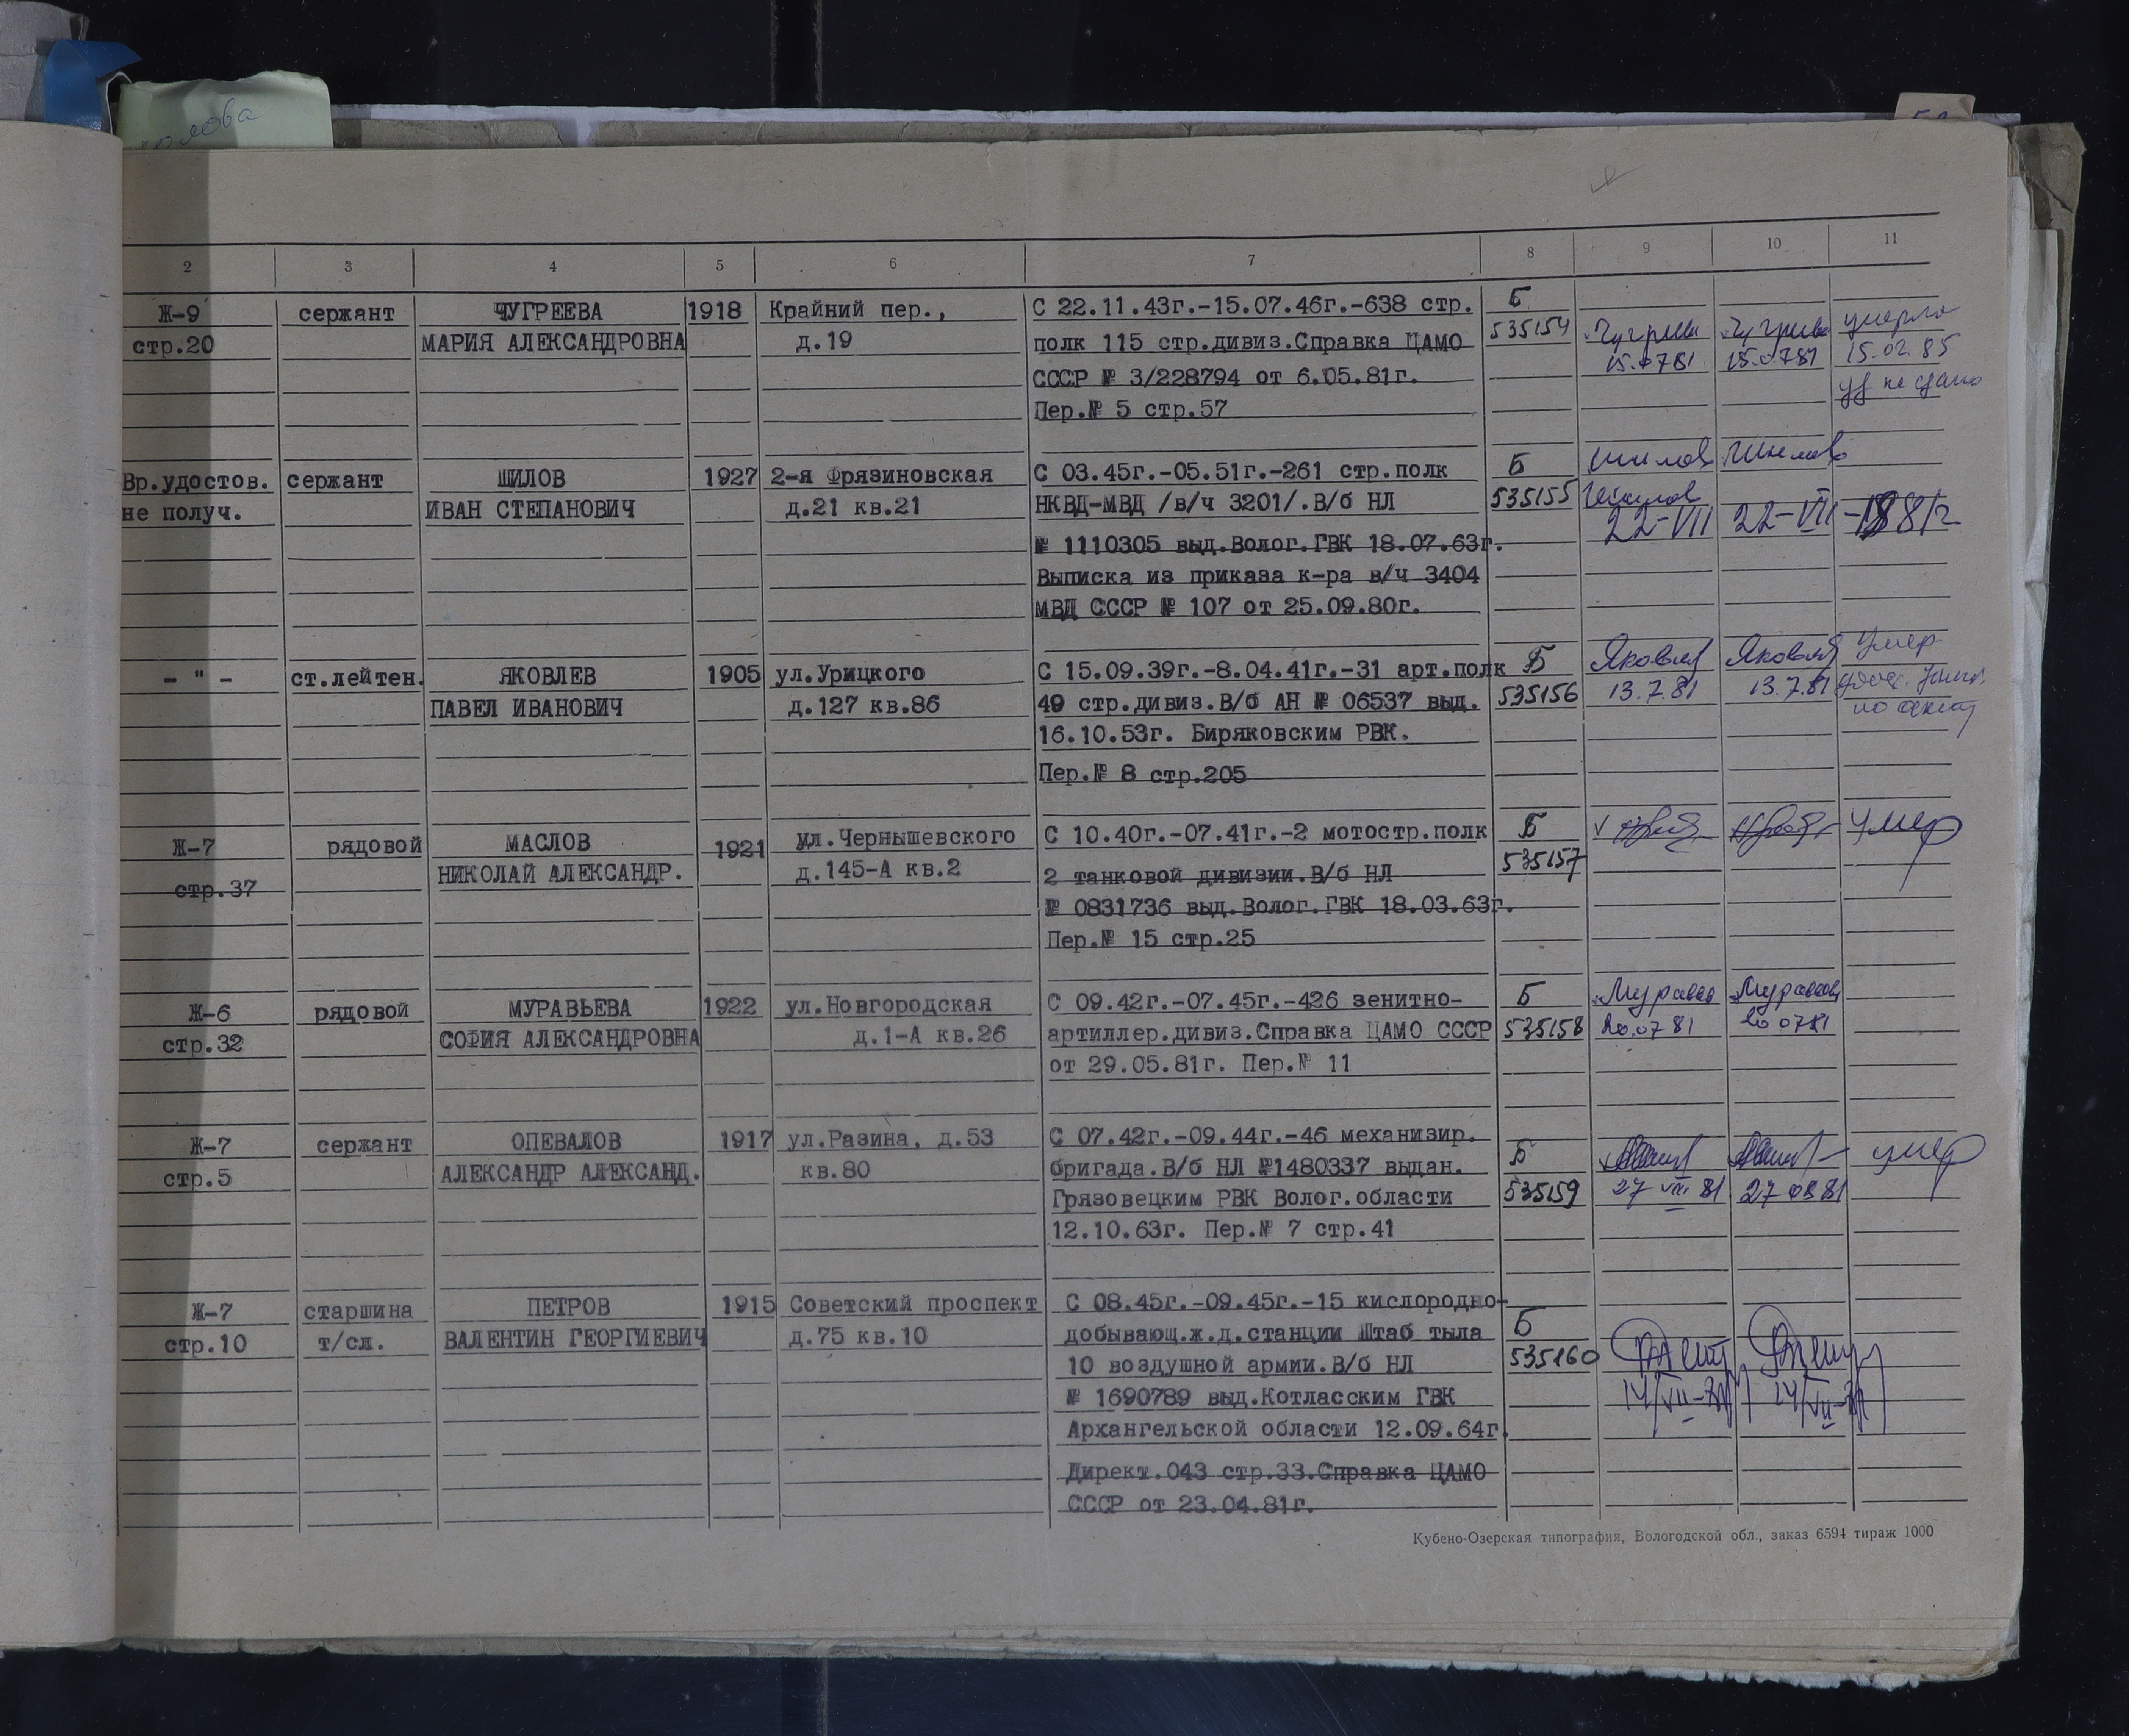 2 3 4 5 6 7 8 9 10 11
Ж-9 сержант ЧУГРЕЕВА 1918 Крайний пер., С 22.11.43г.-15.07.46г.-638 стр. Б
стр.20 МАРИЯ АЛЕКСАНДРОВНА д.19 полк 115 стр.дивиз.Справка ЦАМО 535154 умерла
СССР № 3/228794 от 6.05.81г. 15.0781 15.0781 15.02.85
Пер.№ 5 стр.57 не сдано
Вр.удостов. сержант ШИЛОВ 1927 2-я Фрязиновская С 03.45г.-05.51г.-261 стр.полк Б Шилов Шилов
не получ. ИВАН СТЕПАНОВИЧ д.21 кв.21 НКВД-МВД /в/ч 3201/.В/б НЛ 535155 22-VII 22-VII-1981г
№ 1110305 выд.Волог.ГВК 18.07.63г.
Выписка из приказа к-ра в/ч 3404
МВД СССР № 107 от 25.09.80г.
- " - ст.лейтен. ЯКОВЛЕВ 1905 ул.Урицкого С 15.09.39г.-8.04.41г.-31 арт.полк Б Яковлев Яковлев Умер
ПАВЕЛ ИВАНОВИЧ д.127 кв.86 49 стр.дивиз.В/б АН № 06537 выд. 535156 13.7.81 13.7.81
16.10.53г. Биряковским РВК.
Пер.№ 8 стр.205
Ж-7 рядовой МАСЛОВ 1921 ул.Чернышевского С 10.40г.-07.41г.-2 мотостр.полк Б умер
стр.37 НИКОЛАЙ АЛЕКСАНДР. д.145-А кв.2 2 танковой дивизии.В/б НЛ 535157
№ 0831736 выд.Волог.ГВК 18.03.63г.
Пер.№ 15 стр.25
Ж-6 рядовой МУРАВЬЕВА 1922 ул.Новгородская С 09.42г.-07.45г.-426 зенитно- Б
стр.32 СОФИЯ АЛЕКСАНДРОВНА д.1-А кв.26 артиллер.дивиз.Справка ЦАМО СССР 535158 20.0781 20 0781
от 29.05.81г. Пер.№ 11
Ж-7 сержант ОПЕВАЛОВ 1917 ул.Разина, д.53 С 07.42г.-09.44г.-46 механизир. Б умер
стр.5 АЛЕКСАНДР АЛЕКСАНД. кв.80 бригада.В/б НЛ №1480337 выдан. 535159 27 VIII 81 27 0881
Грязовецким РВК Волог.области
12.10.63г. Пер.№ 7 стр.41
Ж-7 старшина ПЕТРОВ 1915 Советский проспект С 08.45г.-09.45г.-15 кислородно- Б
стр.10 т/сл. ВАЛЕНТИН ГЕОРГИЕВИЧ д.75 кв.10 добывающ.ж.д.станции Штаб тыла 535160
10 воздушной армии.В/б НЛ
№ 1690789 выд.Котласским ГВК
Архангельской области 12.09.64г.
Директ.043 стр.33.Справка ЦАМО
СССР от 23.04.81г.
Кубено-Озерская типография, Вологодской обл., заказ 6594 тираж 1000